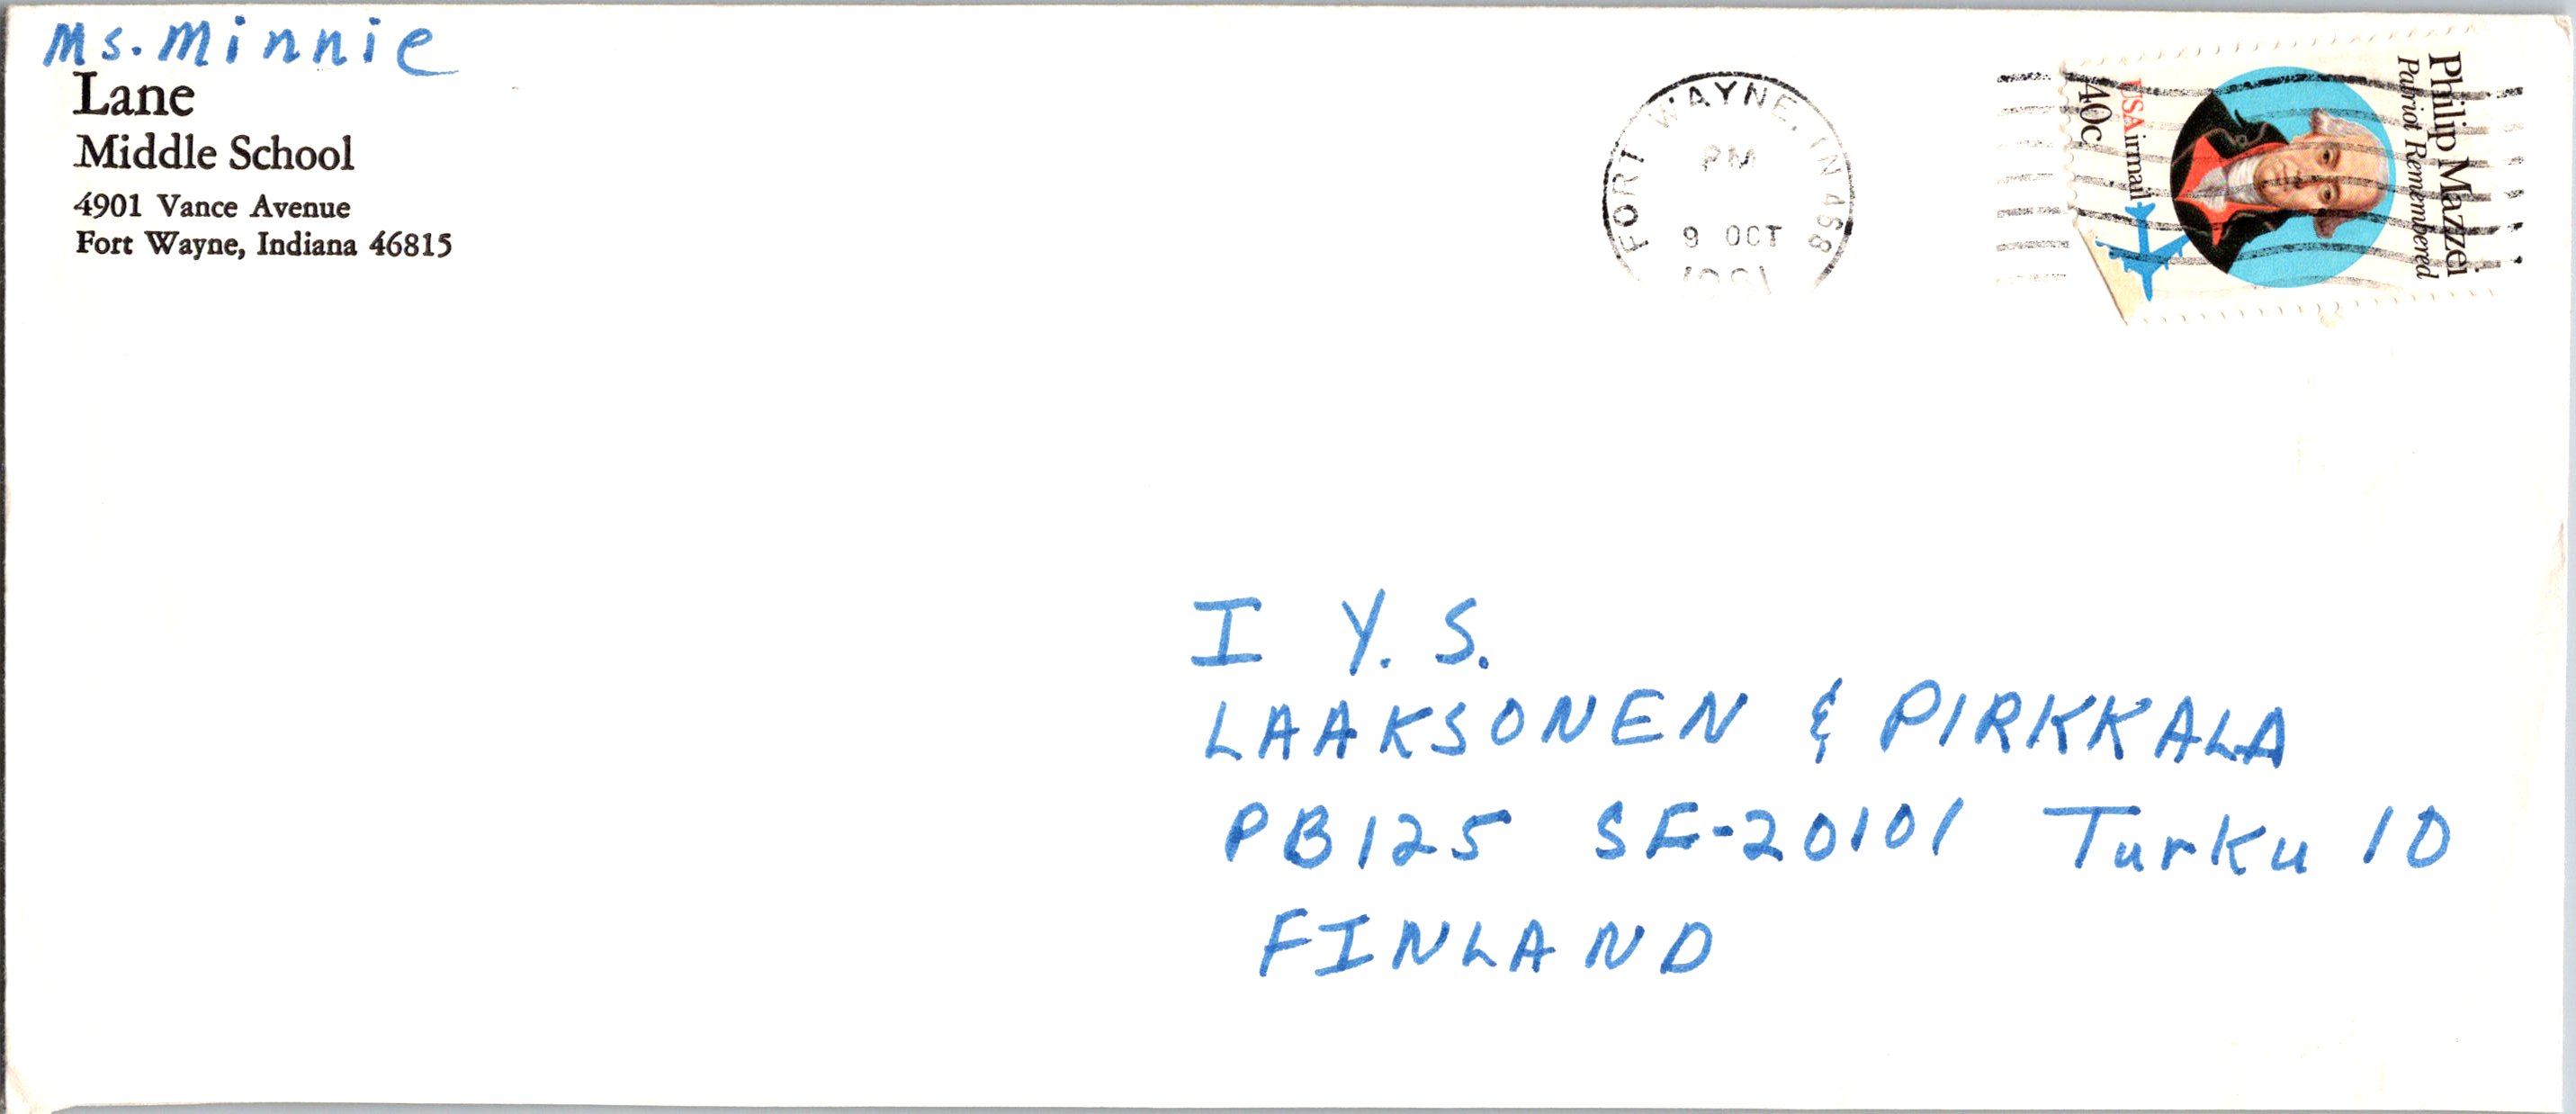 Ms. Minnie
Lane
Middle School
4901 Vance Avenue
Fort Wayne, Indiana 46815
FORT WAYNE, IN 468
PM
9 OCT
Philip Mazzei
Patriot Remembered
USAirmail
40c
I Y. S.
LAAKSONEN & PIRKKALA
PB 125 SF-20101 Turku 10
FINLAND